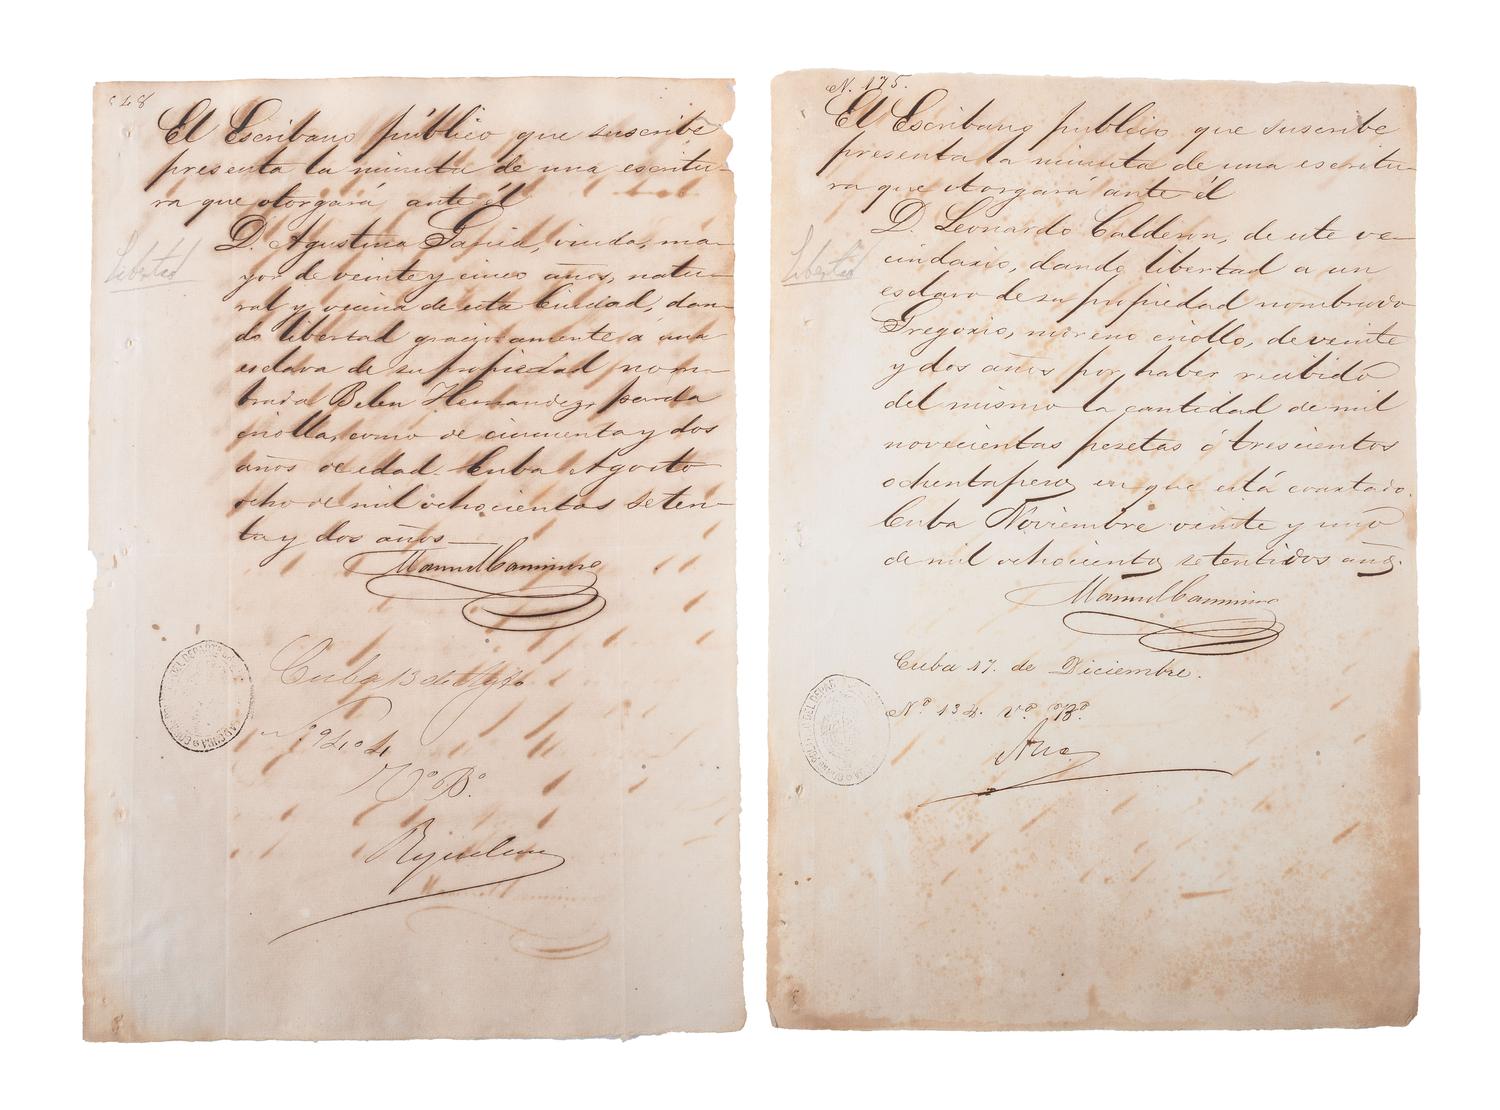 El Escribano público que suscribe
presenta la minuta de una escritu-
ra que otorgará ante él
Libertad
Da. Agustina Garcia, viuda, ma-
yor de veinte y cinco años, natu-
ral y vecina de esta Ciudad, dan-
do libertad graciosamente á una
esclava de su propiedad nom-
brada Belen Hernandez, parda
criolla, como de cincuenta y dos
años de edad. Cuba Agosto
ocho de mil ochocientos seten-
ta y dos años—
Manuel Caminero
Cuba 13 de Agto
Vo. Bo.
N. 175.
El Escribano público que suscribe
presenta la minuta de una escritu-
ra que otorgará ante él
Libertad
D. Leonardo Calderon, de este ve-
cindario, dando libertad a un
esclavo de su propiedad nombrado
Gregorio, moreno criollo, de veinte
y dos años por haber recibido
del mismo la cantidad de mil
novecientas pesetas ó trescientos
ochenta pesos en que está coartado.
Cuba Noviembre veinte y uno
de mil ochocientos setentidos años.
Manuel Caminero
Cuba 17. de Diciembre.
No 134. Vo. Bo.